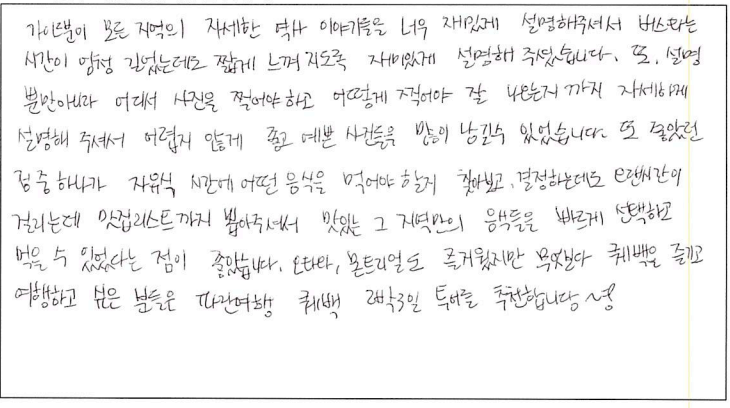 가이드분이 모든 지역의 자세한 역사 이야기들을 너무 재밌게 설명해주셔서 버스타는
시간이 엄청 길었는데도 짧게 느껴지도록 재미있게 설명해 주셨습니다. 또, 설명
뿐만아니라 어디서 사진을 찍어야하고 어떻게 찍어야 잘 나오는지 까지 자세하게
설명해 주셔서 어렵지 않게 좋고 예쁜 사진들을 많이 남길수 있었습니다. 또 좋았던
점 중 하나가 자유식 시간에 어떤 음식을 먹어야 할지 찾아보고, 결정하는데도 오랜시간이
걸리는데 맛집리스트까지 뽑아주셔서 맛있는 그 지역만의 음식들을 빠르게 선택하고
먹을 수 있었다는 점이 좋았습니다. 오타와, 몬트리얼도 즐거웠지만 무엇보다 퀘백을 즐기고
여행하고 싶은 분들은 따관여행 퀘백 2박3일 투어를 추천합니다~!